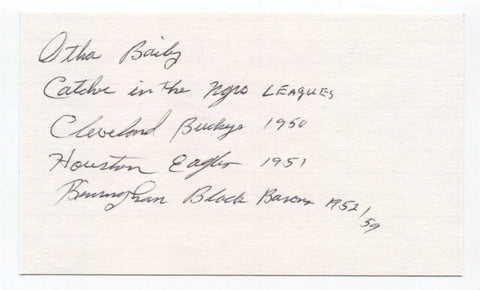 Otha Baily
Catcher in the Negro LEAGUES
Cleveland Buckeys 1950
Houston Eagles 1951
Birmingham Black Barons 1952/59